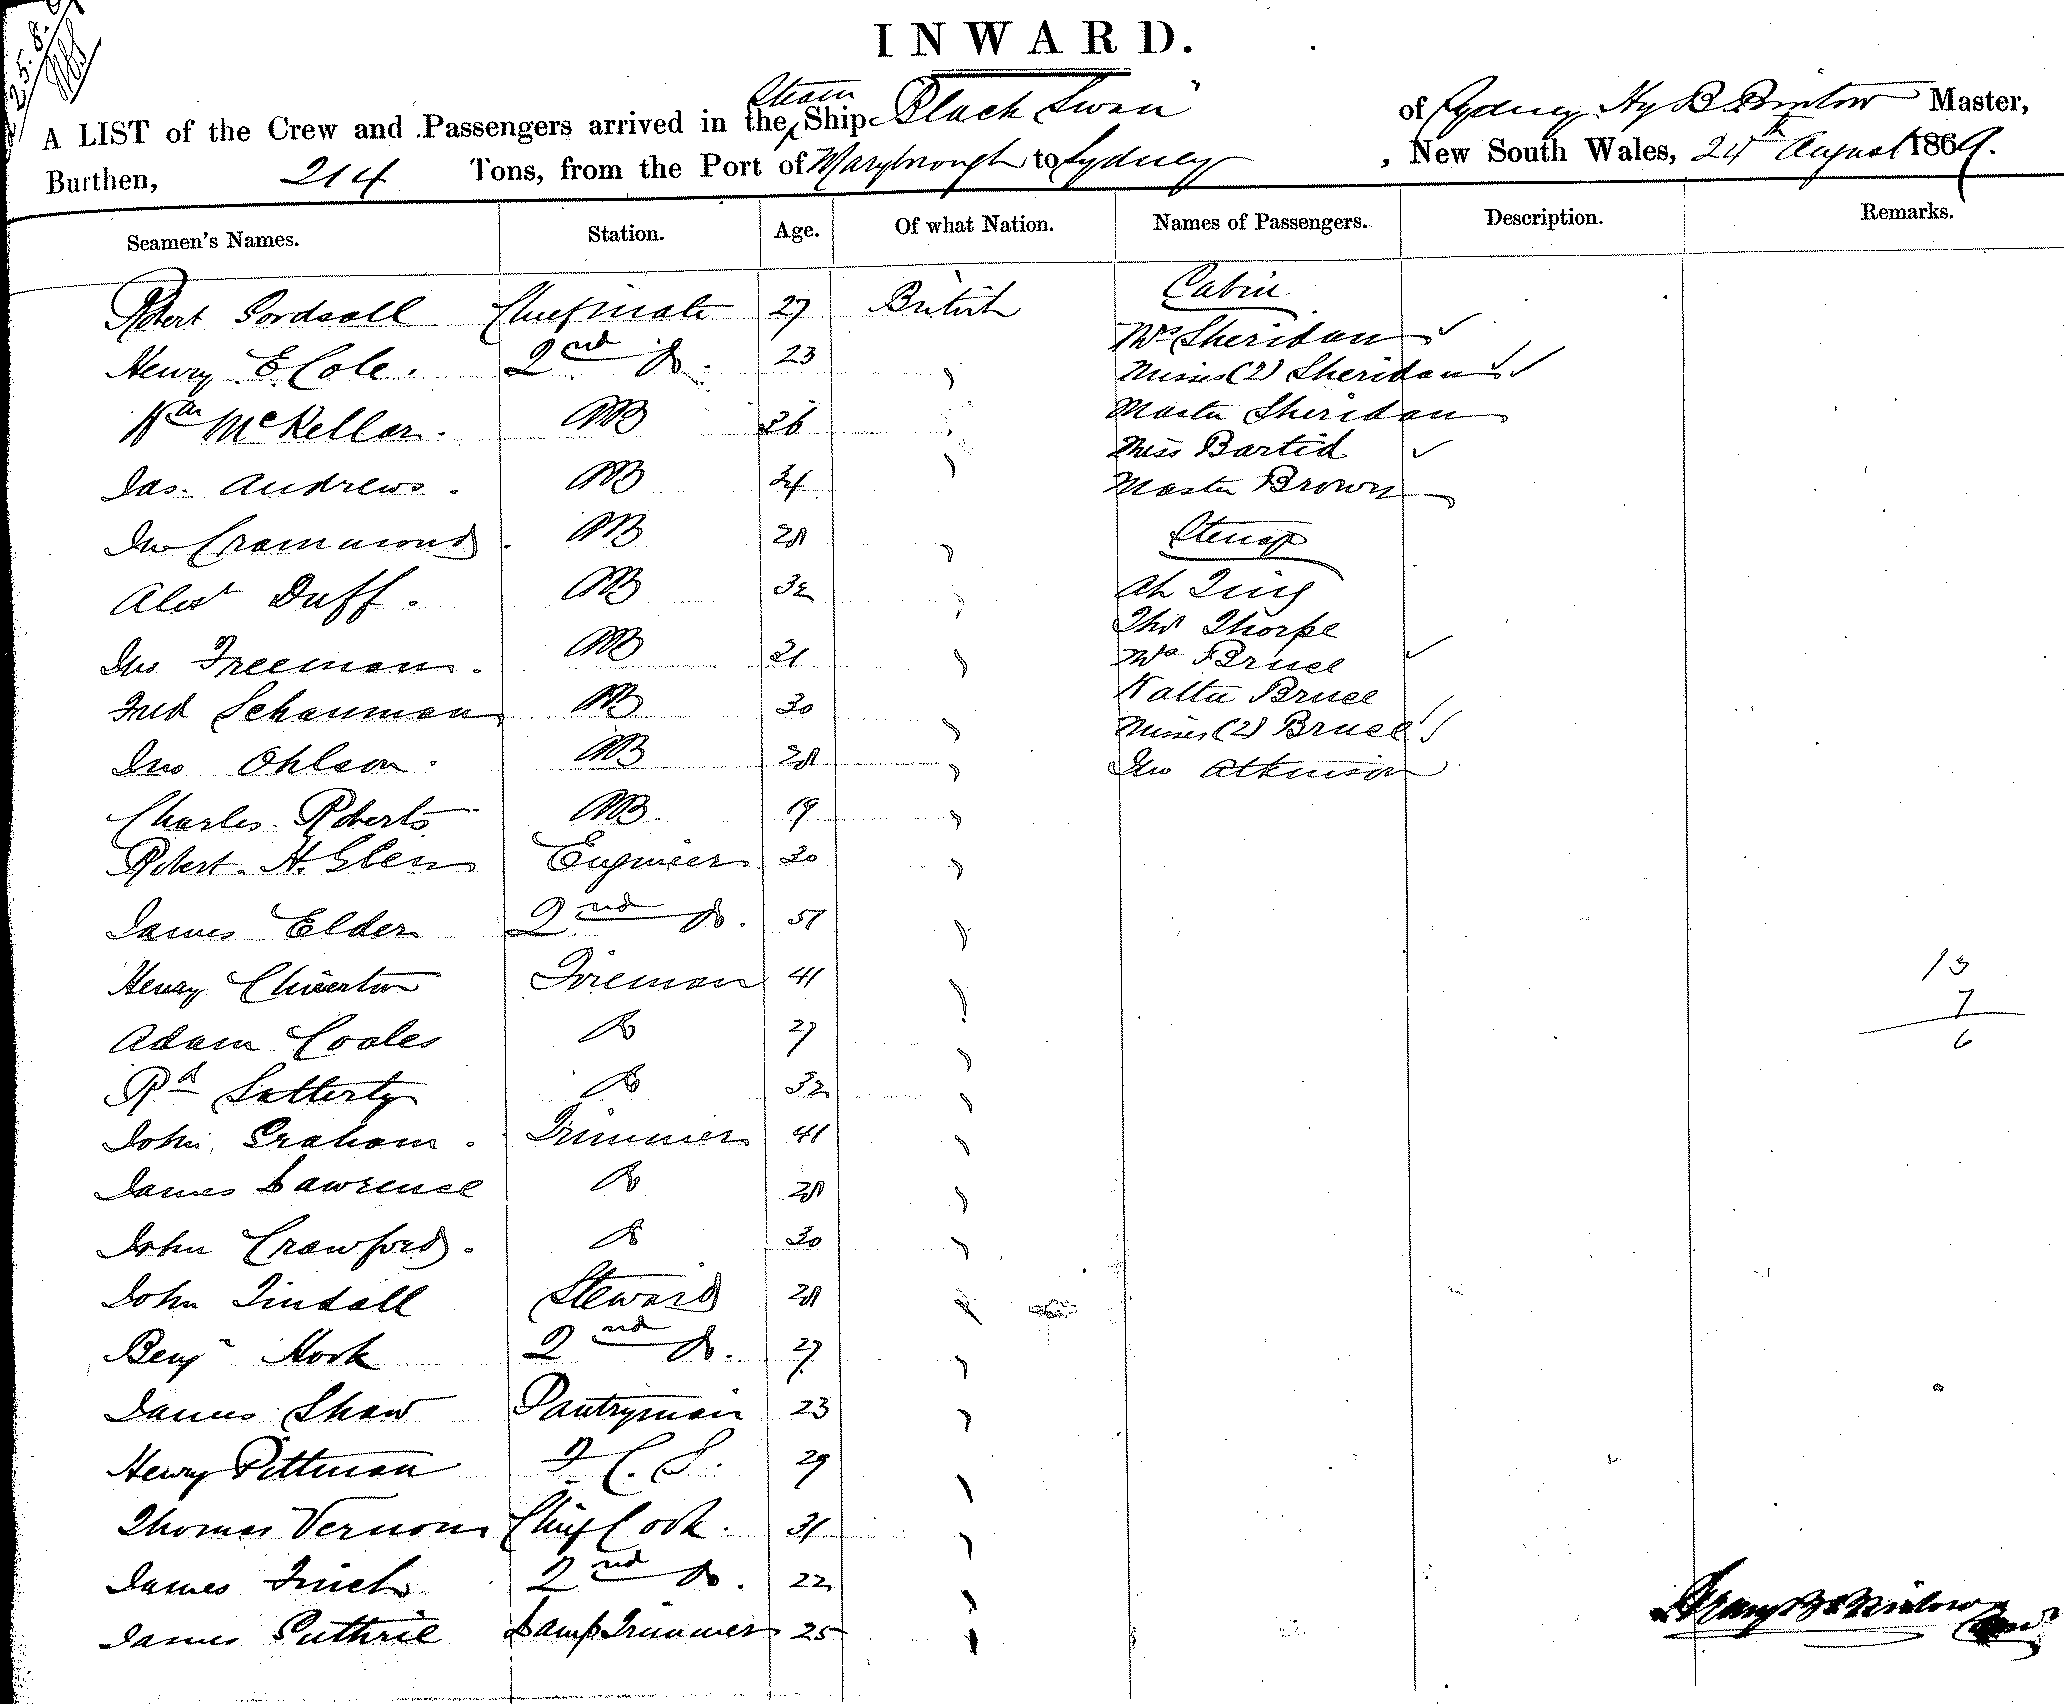 25.8.
INWARD.
A LIST of the Crew and Passengers arrived in the Steam Ship "Black Swan" of Sydney Hy B Bristow Master,
Burthen, 214 Tons, from the Port of Maryborough to Sydney, New South Wales, 24th August 1869.
Seamen's Names. Station. Age. Of what Nation. Names of Passengers. Description. Remarks.
Robert Sordsall Chief mate 27 British Cabin
Henry E Cole. 2nd Do. 23 Mrs Sheridan
Misses (2) Sheridan
Wm McKellar. AB 26 Master Sheridan
Miss
Jas. Andrews. AB 24 Master Brown
Jno Crammond. AB 28 Steerage
Alexr Duff. AB 32 Ah
Thos Thorpe
Jno Freeman. AB 21 Mrs Bruce
Fred Schauman AB 30 Walter Bruce
Misses (2) Bruce
Jno Ohlson. AB 28 Jno Atkinson
Charles Roberts AB. 19
Robert. H. Glen Engineer 30
James Elder 2nd Do. 51
Henry Chiverton Fireman 41
13
7
6
Adam Coales Do 27
Rd Do 32
John Graham. Trimmer 41
James Lawrence Do 28
John Crawford. Do 30
John Tindall Steward 28
Benjn Hook 2nd Do. 27
James Shaw Pantryman 23
Henry Pittman F.C.S. 29
Thomas Vernon Chief Cook. 31
James Finch 2nd Do. 22
James Guthrie Lamp Trimmer 25